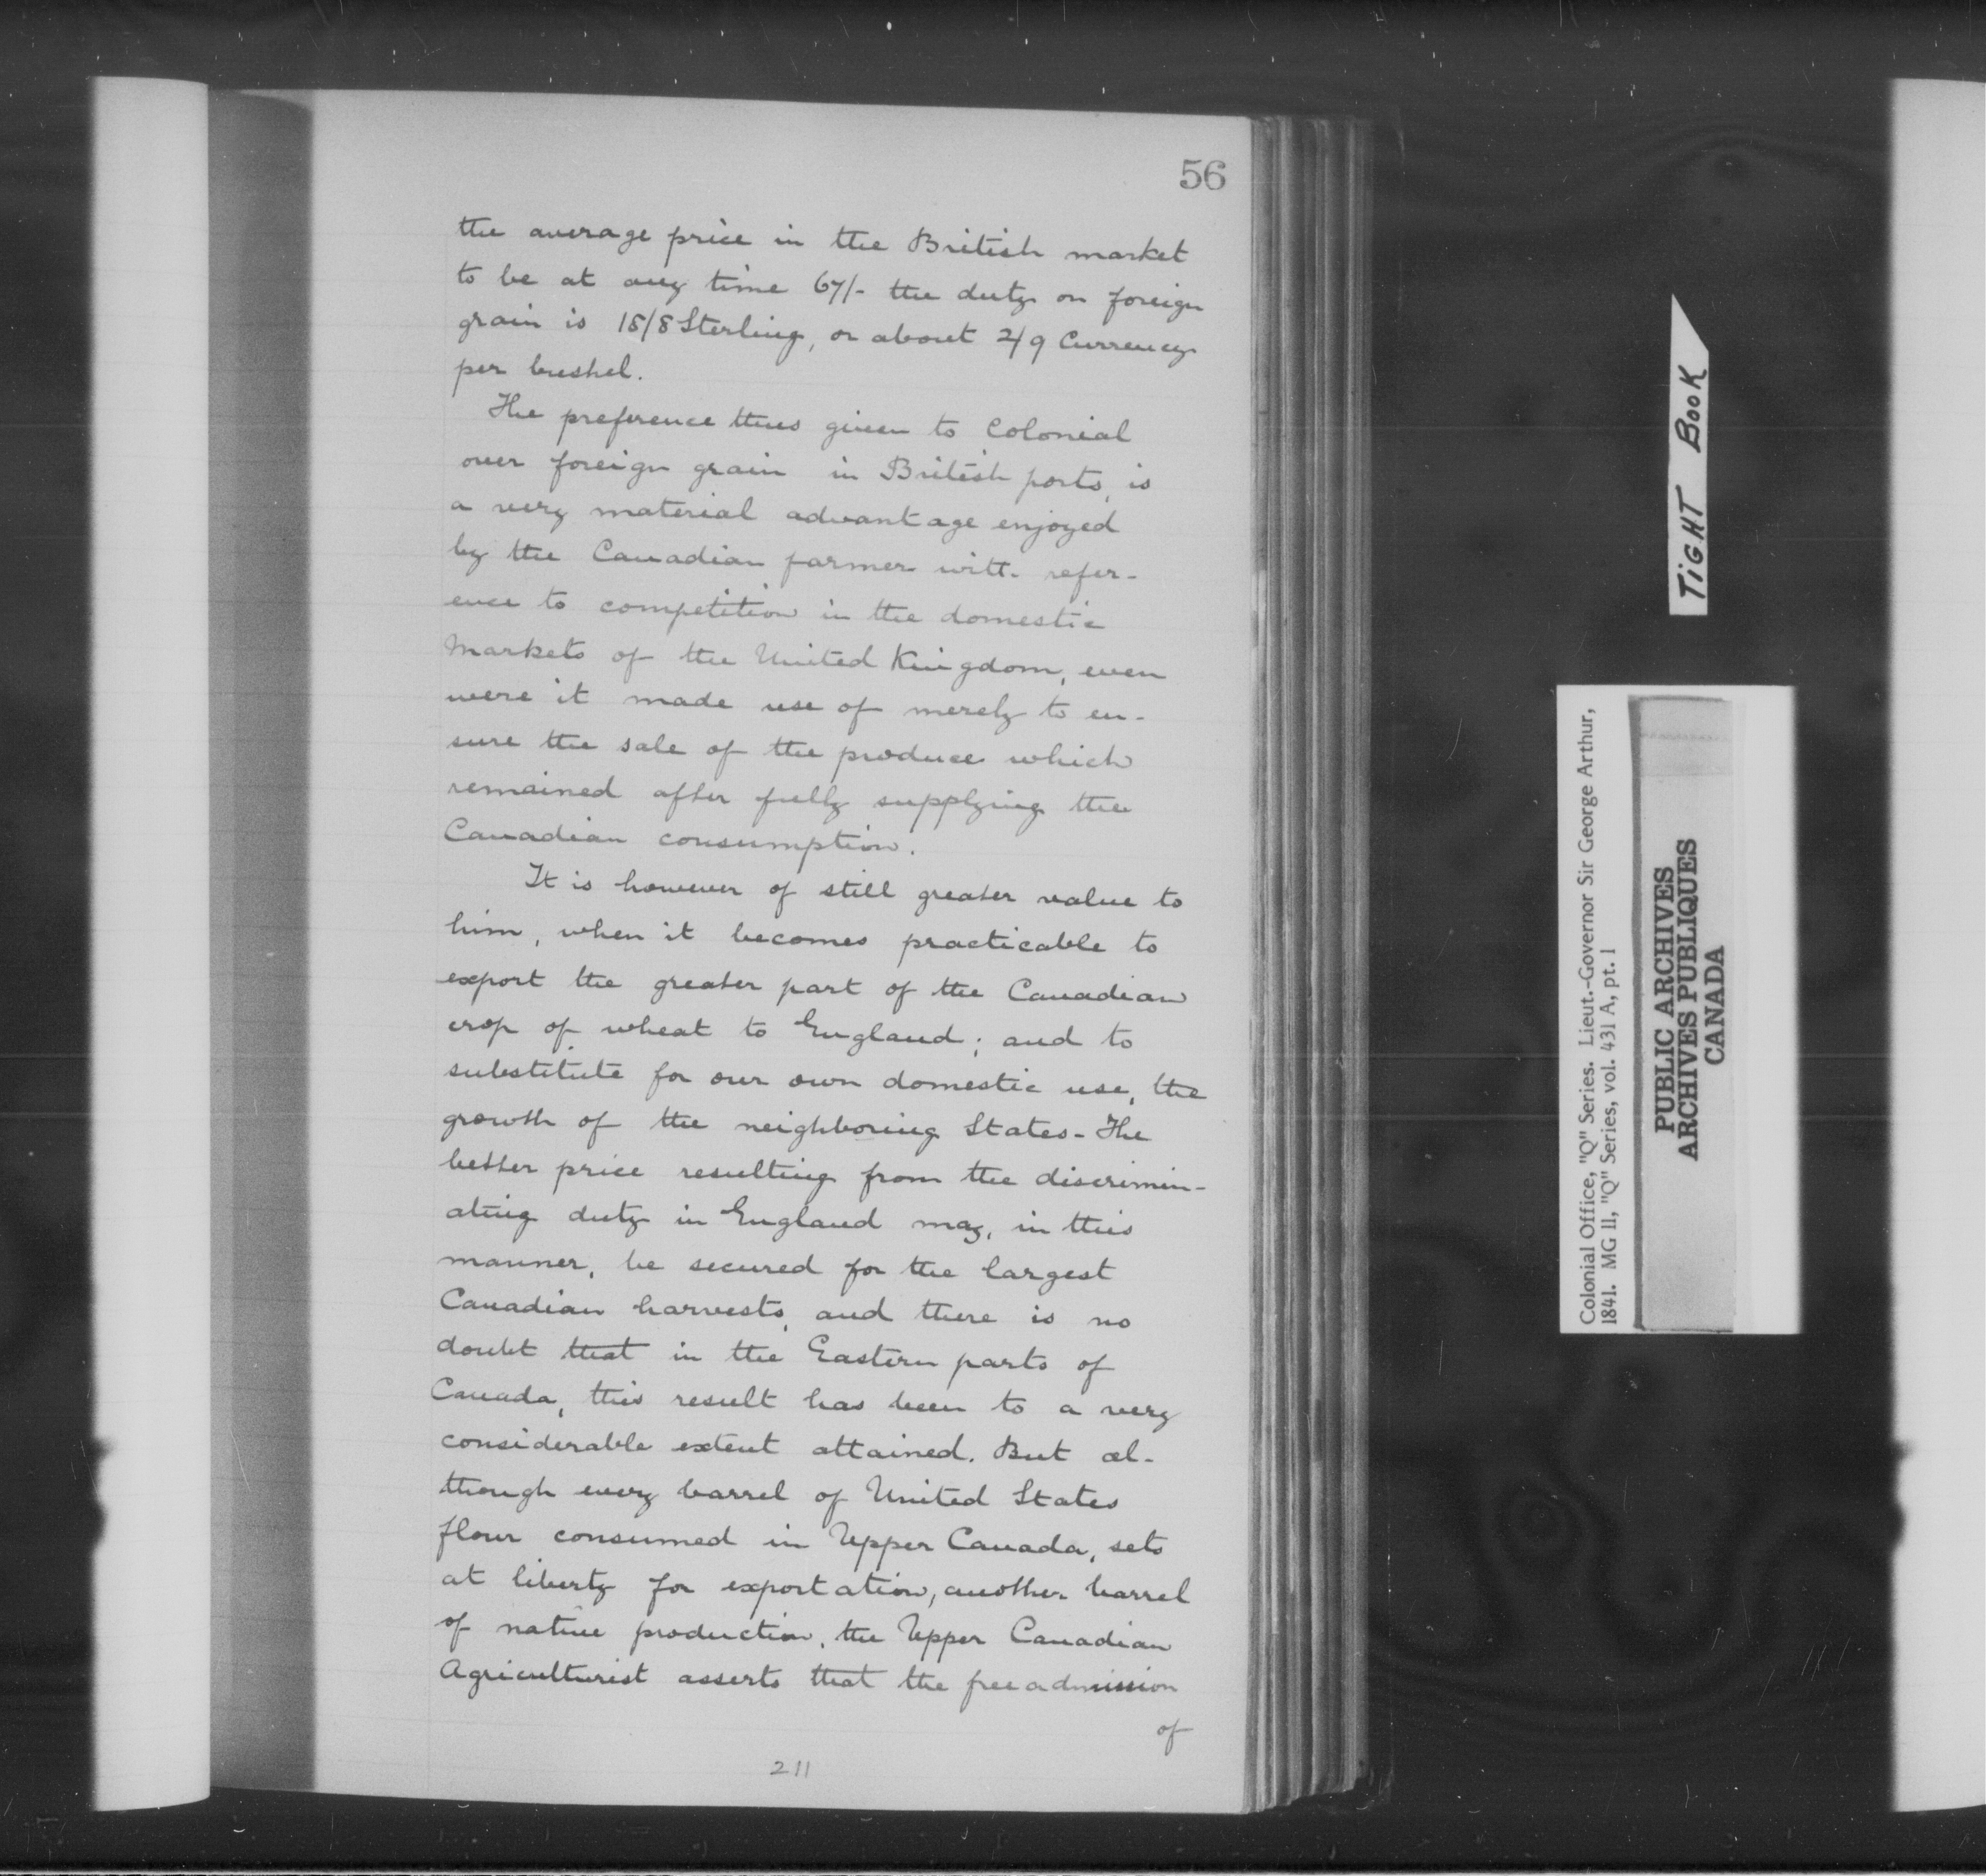 56
the average price in the British market
to be at any time 67/- the duty on foreign
grain is 18/8 Sterling, or about 2/9 Currency
per bushel.
The preference thus given to Colonial
over foreign grain in British ports, is
a very material advantage enjoyed
by the Canadian farmer with refer-
ence to competition in the domestic
Markets of the United Kingdom, even
were it made use of merely to en-
sure the sale of the produce which
remained after fully supplying the
Canadian consumption.
It is however of still greater value to
him, when it becomes practicable to
export the greater part of the Canadian
crop of wheat to England; and to
substitute for our own domestic use, the
growth of the neighboring States - The
better price resulting from the discrimin-
ating duty in England may, in this
manner, be secured for the largest
Canadian harvests, and there is no
doubt that in the Eastern parts of
Canada, this result has been to a very
considerable extent attained. But al-
though every barrel of United States
flour consumed in Upper Canada, sets
at liberty for exportation, another barrel
of native production, the Upper Canadian
Agriculturist asserts that the free admission
of
211
TIGHT BOOK
Colonial Office, "Q" Series. Lieut.-Governor Sir George Arthur,
1841. MG 11, "Q" Series, vol. 431 A, pt. 1
PUBLIC ARCHIVES
ARCHIVES PUBLIQUES
CANADA